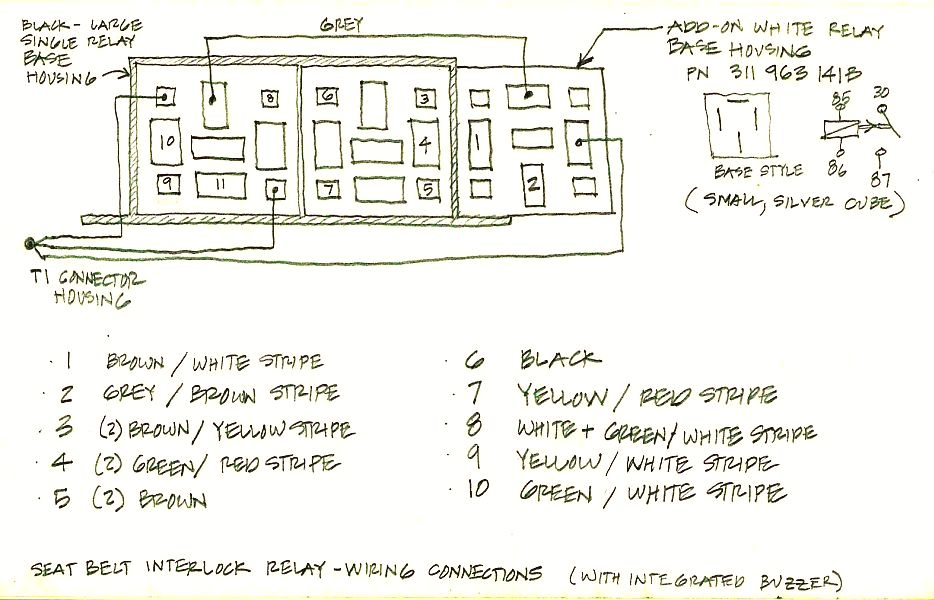 BLACK - LARGE
SINGLE RELAY
BASE
HOUSING
GREY
ADD-ON WHITE RELAY
BASE HOUSING
PN 311 963 141B
8
6
3
10
4
1
9
11
7
5
2
85
30
86
87
BASE STYLE
(SMALL, SILVER CUBE)
T1 CONNECTOR
HOUSING
· 1 BROWN / WHITE STRIPE
· 2 GREY / BROWN STRIPE
· 3 (2) BROWN / YELLOW STRIPE
· 4 (2) GREEN / RED STRIPE
· 5 (2) BROWN
· 6 BLACK
· 7 YELLOW / RED STRIPE
· 8 WHITE + GREEN / WHITE STRIPE
· 9 YELLOW / WHITE STRIPE
· 10 GREEN / WHITE STRIPE
SEAT BELT INTERLOCK RELAY - WIRING CONNECTIONS (WITH INTEGRATED BUZZER)